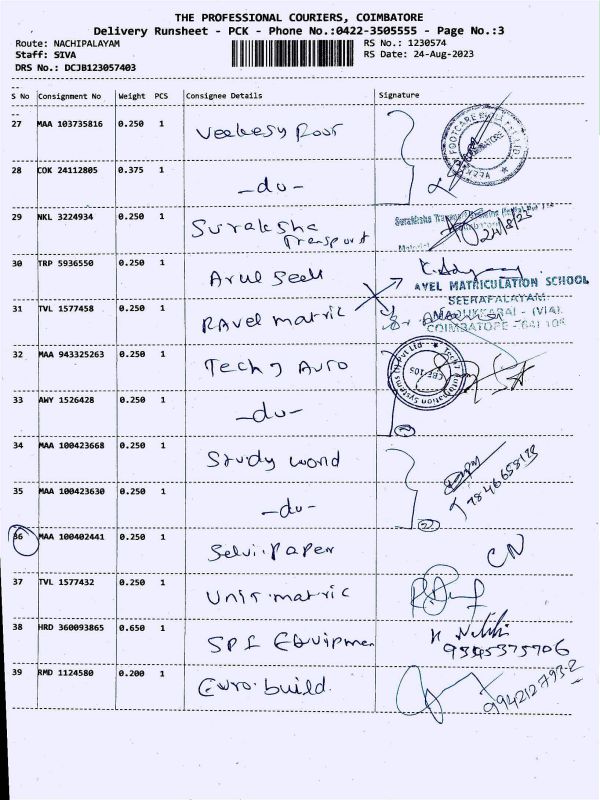 THE PROFESSIONAL COURIERS, COIMBATORE
Delivery Runsheet - PCK - Phone No.:0422-3505555 - Page No.:3
Route: NACHIPALAYAM RS No.: 1230574
Staff: SIVA RS Date: 24-Aug-2023
DRS No.: DCJB123057403
S No Consignment No Weight PCS Consignee Details Signature
27 MAA 103735816 0.250 1
FOOTCARE COIMBATORE
28 COK 24112805 0.375 1 -do-
29 NKL 3224934 0.250 1 Suraksha Transport
24/8/23
30 TRP 5936550 0.250 1 Arul Seeli
AVEL MATRICULATION SCHOOL
SEERAPALAYAM
31 TVL 1577458 0.250 1 RAvel matric
MADUKKARAI - (VIA).
COIMBATORE - 641 105
32 MAA 943325263 0.250 1 Tech 7 Auto
Tech7 Automation Systems (I) Pvt Ltd
CBE-105
33 AWY 1526428 0.250 1 -do-
2
34 MAA 100423668 0.250 1 Study world
35 MAA 100423630 0.250 1 -do-
2
36 MAA 100402441 0.250 1 Selvi.Paper CN
37 TVL 1577432 0.250 1 Unit.matric
38 HRD 360093865 0.650 1 SPI Equipmen
9345375706
39 RMD 1124580 0.200 1 Euro.build.